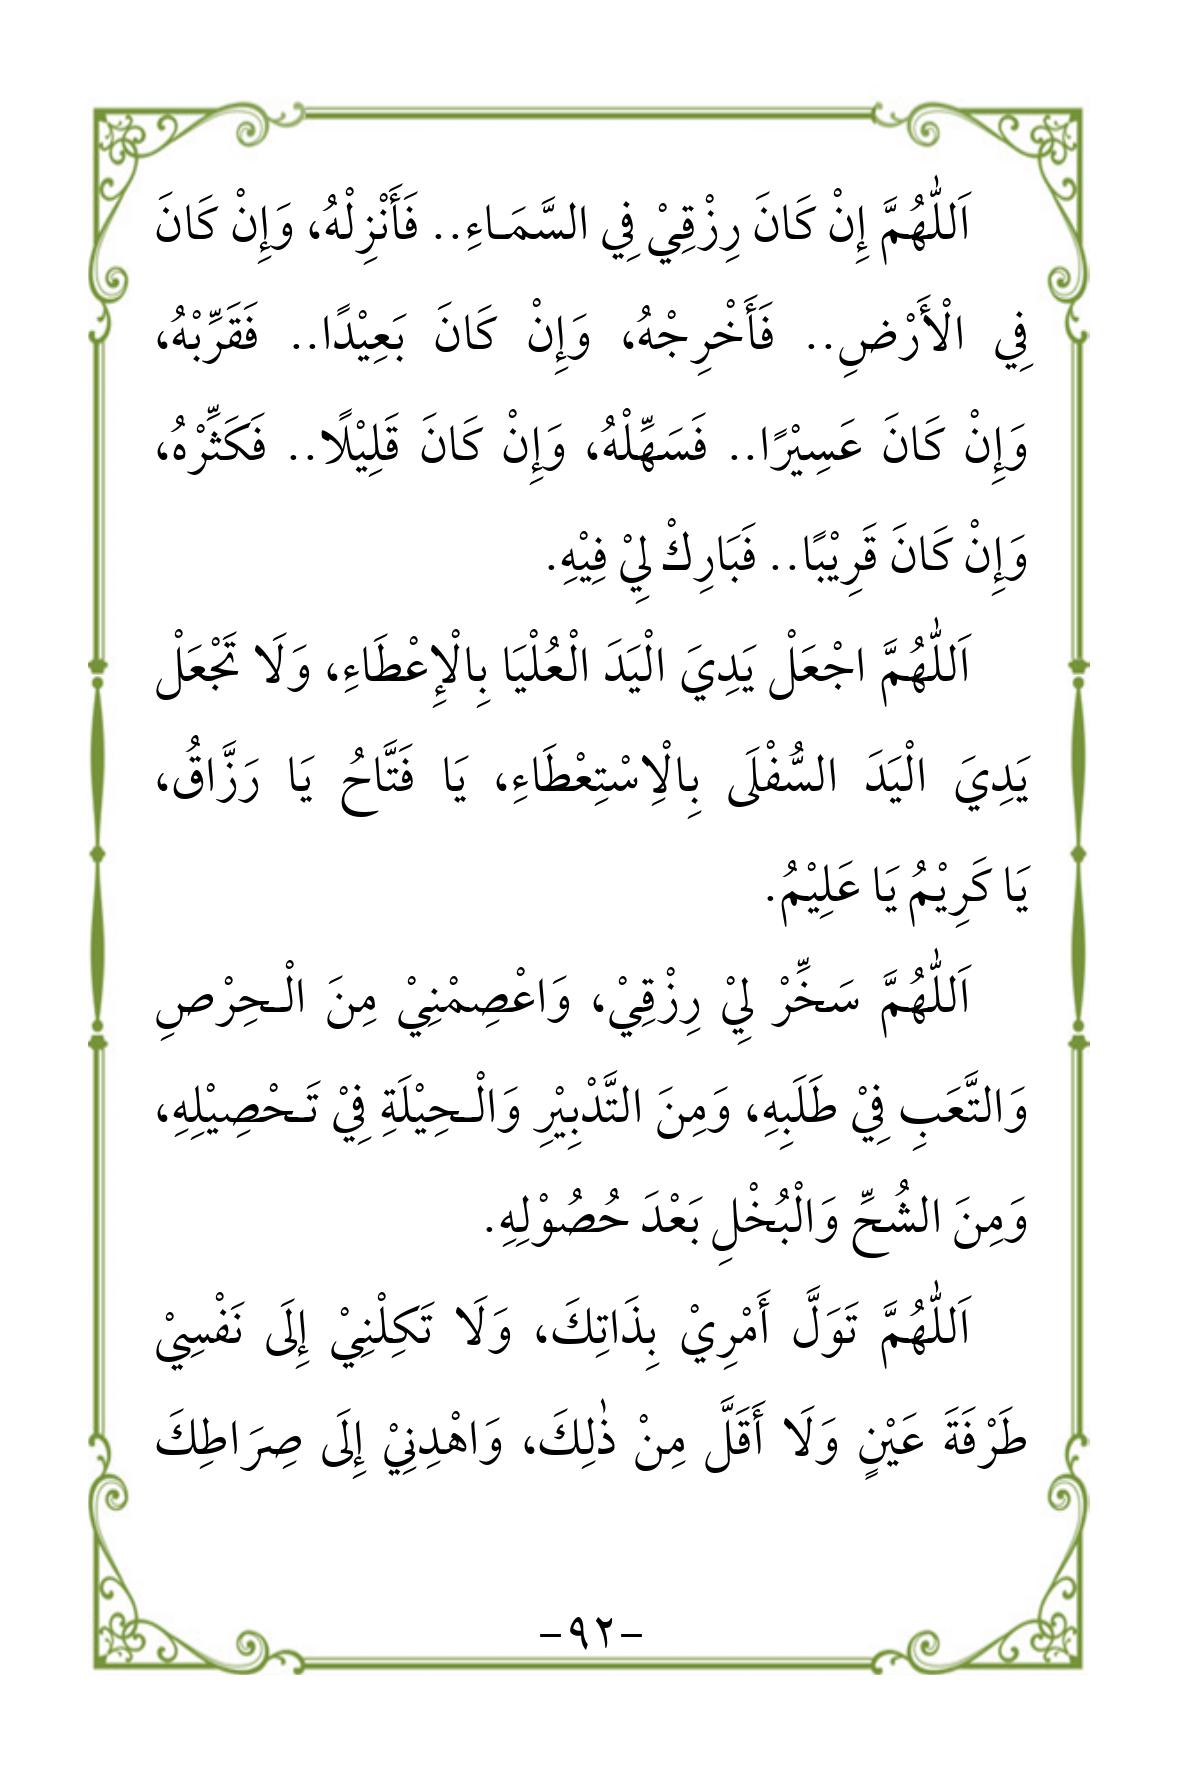 اَللّٰهُمَّ إِنْ كَانَ رِزْقِيْ فِي السَّمَاءِ.. فَأَنْزِلْهُ، وَإِنْ كَانَ
فِي الْأَرْضِ.. فَأَخْرِجْهُ، وَإِنْ كَانَ بَعِيْدًا.. فَقَرِّبْهُ،
وَإِنْ كَانَ عَسِيْرًا.. فَسَهِّلْهُ، وَإِنْ كَانَ قَلِيْلًا.. فَكَثِّرْهُ،
وَإِنْ كَانَ قَرِيْبًا.. فَبَارِكْ لِيْ فِيْهِ.
اَللّٰهُمَّ اجْعَلْ يَدِيَ الْيَدَ الْعُلْيَا بِالْإِعْطَاءِ، وَلَا تَجْعَلْ
يَدِيَ الْيَدَ السُّفْلَى بِالْاِسْتِعْطَاءِ، يَا فَتَّاحُ يَا رَزَّاقُ،
يَا كَرِيْمُ يَا عَلِيْمُ.
اَللّٰهُمَّ سَخِّرْ لِيْ رِزْقِيْ، وَاعْصِمْنِيْ مِنَ الْـحِرْصِ
وَالتَّعَبِ فِيْ طَلَبِهِ، وَمِنَ التَّدْبِيْرِ وَالْـحِيْلَةِ فِيْ تَـحْصِيْلِهِ،
وَمِنَ الشُّحِّ وَالْبُخْلِ بَعْدَ حُصُوْلِهِ.
اَللّٰهُمَّ تَوَلَّ أَمْرِيْ بِذَاتِكَ، وَلَا تَكِلْنِيْ إِلَى نَفْسِيْ
طَرْفَةَ عَيْنٍ وَلَا أَقَلَّ مِنْ ذٰلِكَ، وَاهْدِنِيْ إِلَى صِرَاطِكَ
-٩٢-